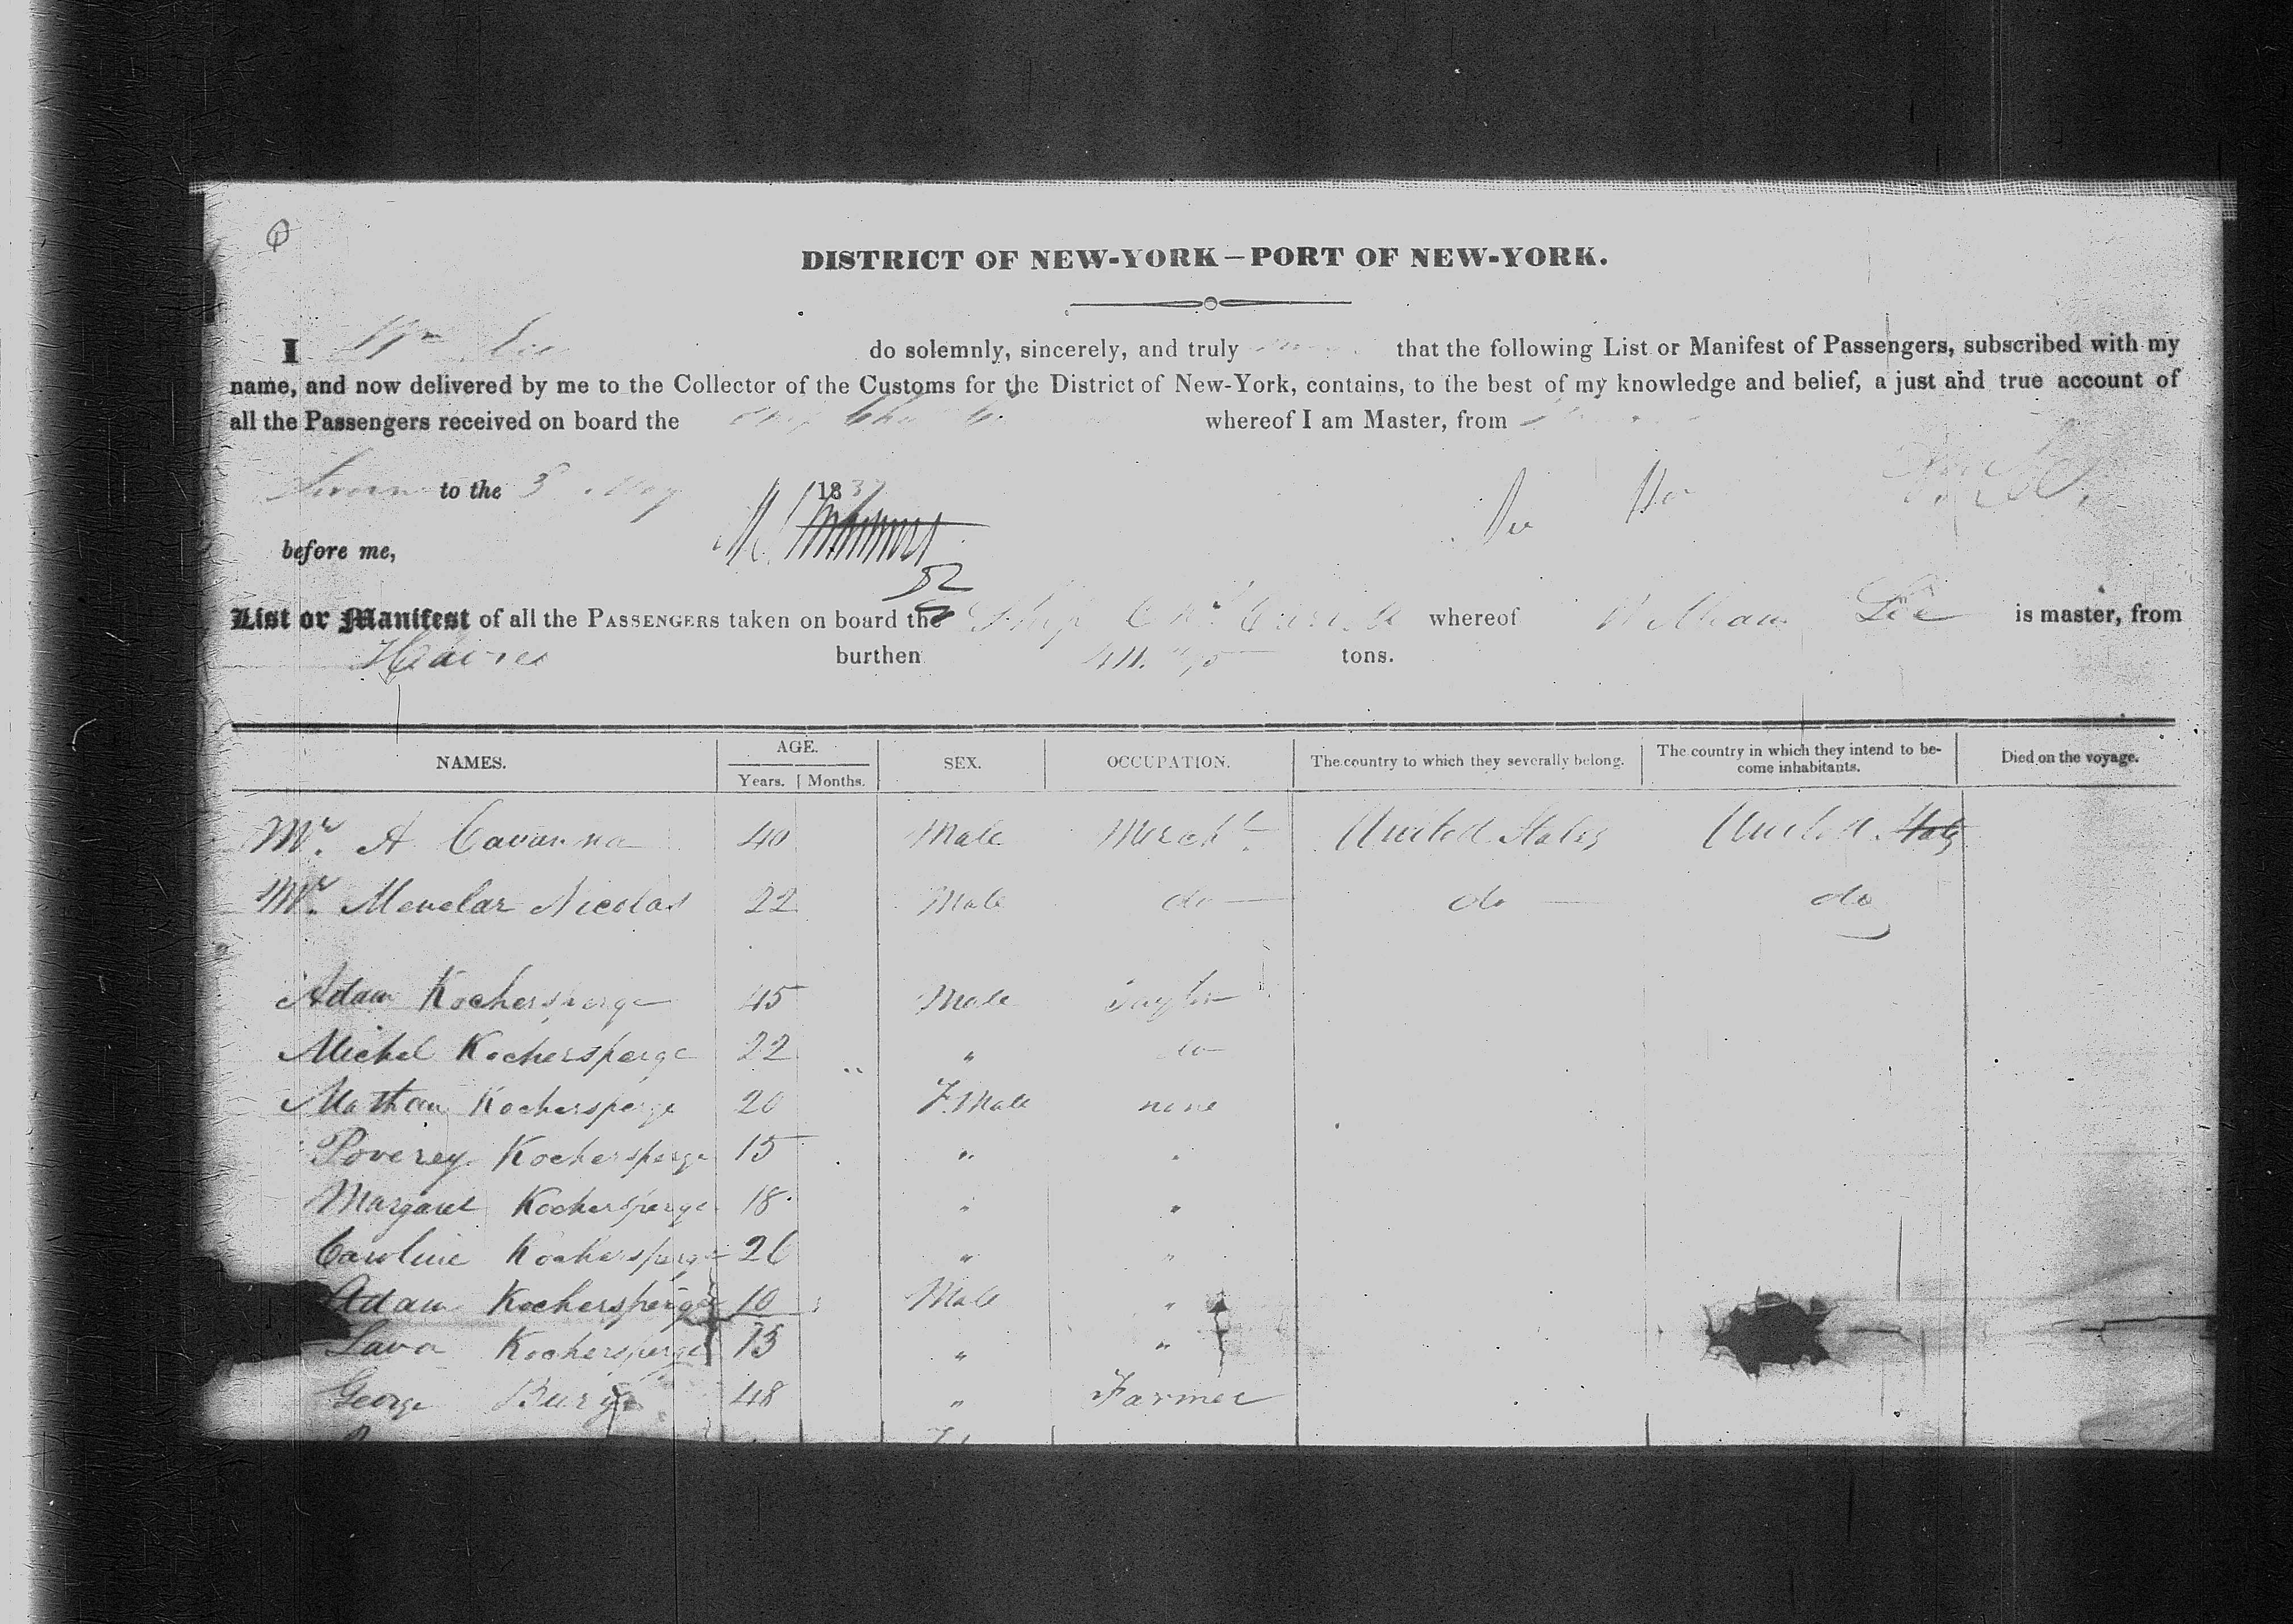 DISTRICT OF NEW-YORK–PORT OF NEW-YORK.
I Wm Lee do solemnly, sincerely, and truly that the following List or Manifest of Passengers, subscribed with my
name, and now delivered by me to the Collector of the Customs for the District of New-York, contains, to the best of my knowledge and belief, a just and true account of
all the Passengers received on board the whereof I am Master, from
Sworn to the 3 May 1837
before me,
52
List or Manifest of all the PASSENGERS taken on board the Ship whereof William Lee is master, from
Havre burthen 411 tons.
NAMES. AGE. SEX. OCCUPATION. The country to which they severally belong. The country in which they intend to be-come inhabitants. Died on the voyage.
Years. Months.
Mr. A Cavanna 40 Male Mercht United States United States
Mr. Menelar Nicolas 22 Male do do do
Adam Kochersperge 45 Male Taylor
Michel Kochersperge 22 " do
Mathan Kochersperge 20 F.Male none
Poverey Kochersperge 15 " "
Margaret Kochersperge 18 " "
Caroline Kochersperge " "
Adam Kochersperge 10 Male "
Lava Kochersperge 13 " "
George 48 " Farmer